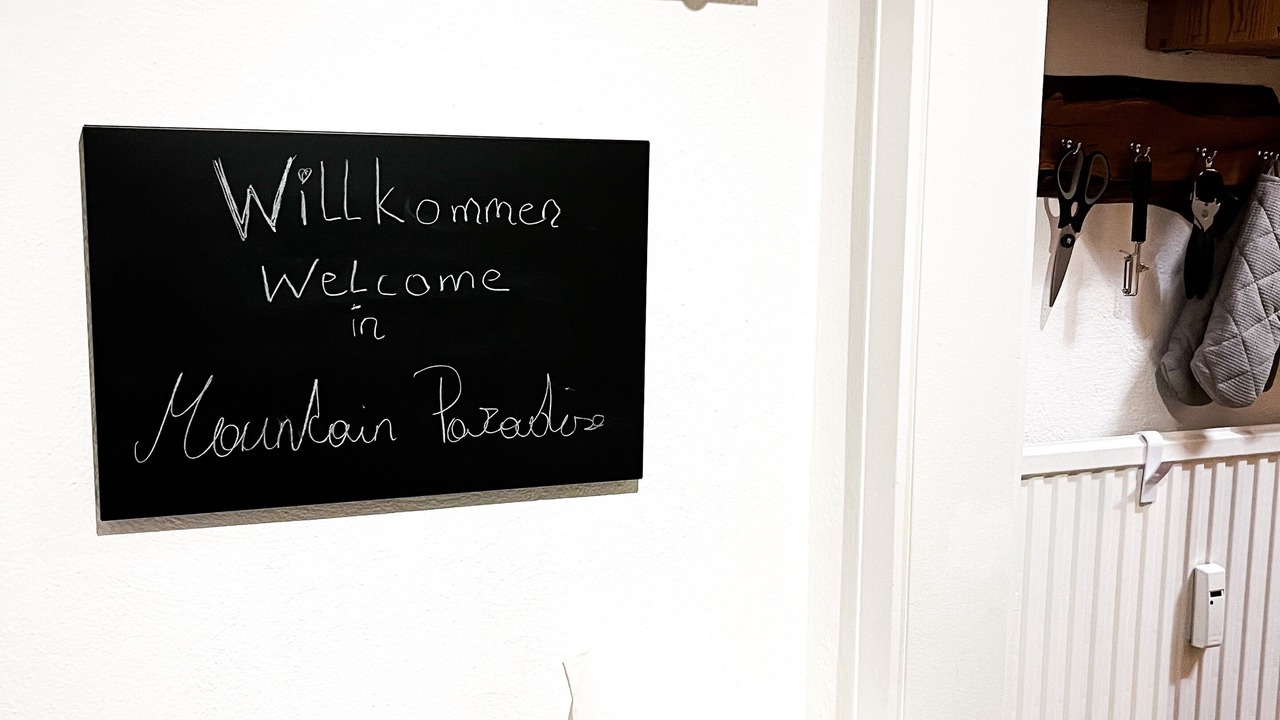 Willkommen
Welcome
in
Mountain Paradise